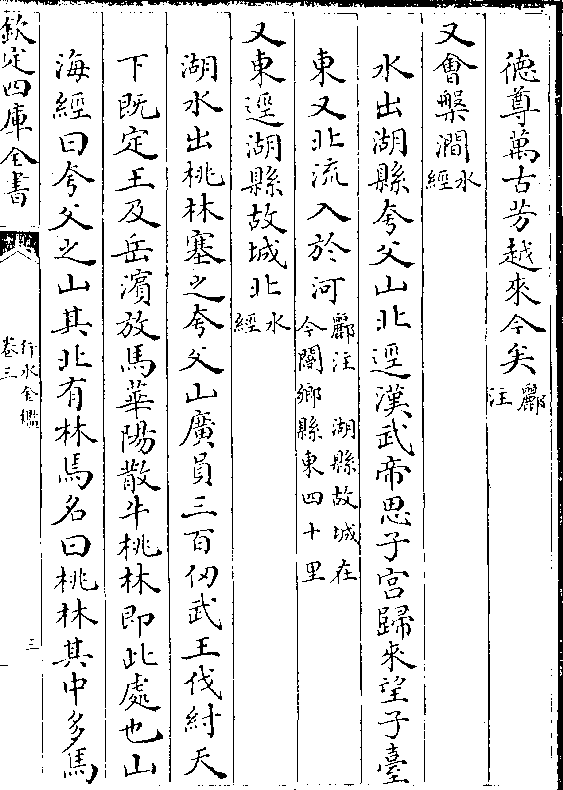 德尊萬古芳越來今矣酈注
又會槃澗水經
水出湖縣夸父山北逕漢武帝思子宫歸來望子臺
東又北流入於河酈注　湖縣故城在今閿鄉縣東四十里
又東逕湖縣故城北水經
湖水出桃林塞之夸父山廣員三百仞武王伐紂天
下既定王及岳濱放馬華陽散牛桃林即此處也山
海經曰夸父之山其北有林焉名曰桃林其中多馬
欽定四庫全書
行水金鑑
卷三
三